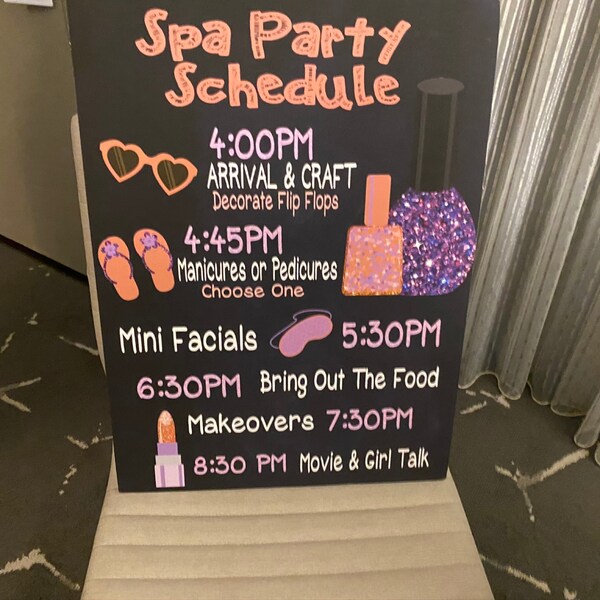 Spa Party
Schedule
4:00PM
ARRIVAL & CRAFT
Decorate Flip Flops
4:45PM
Manicures or Pedicures
Choose One
Mini Facials 5:30PM
6:30PM Bring Out The Food
Makeovers 7:30PM
8:30 PM Movie & Girl Talk